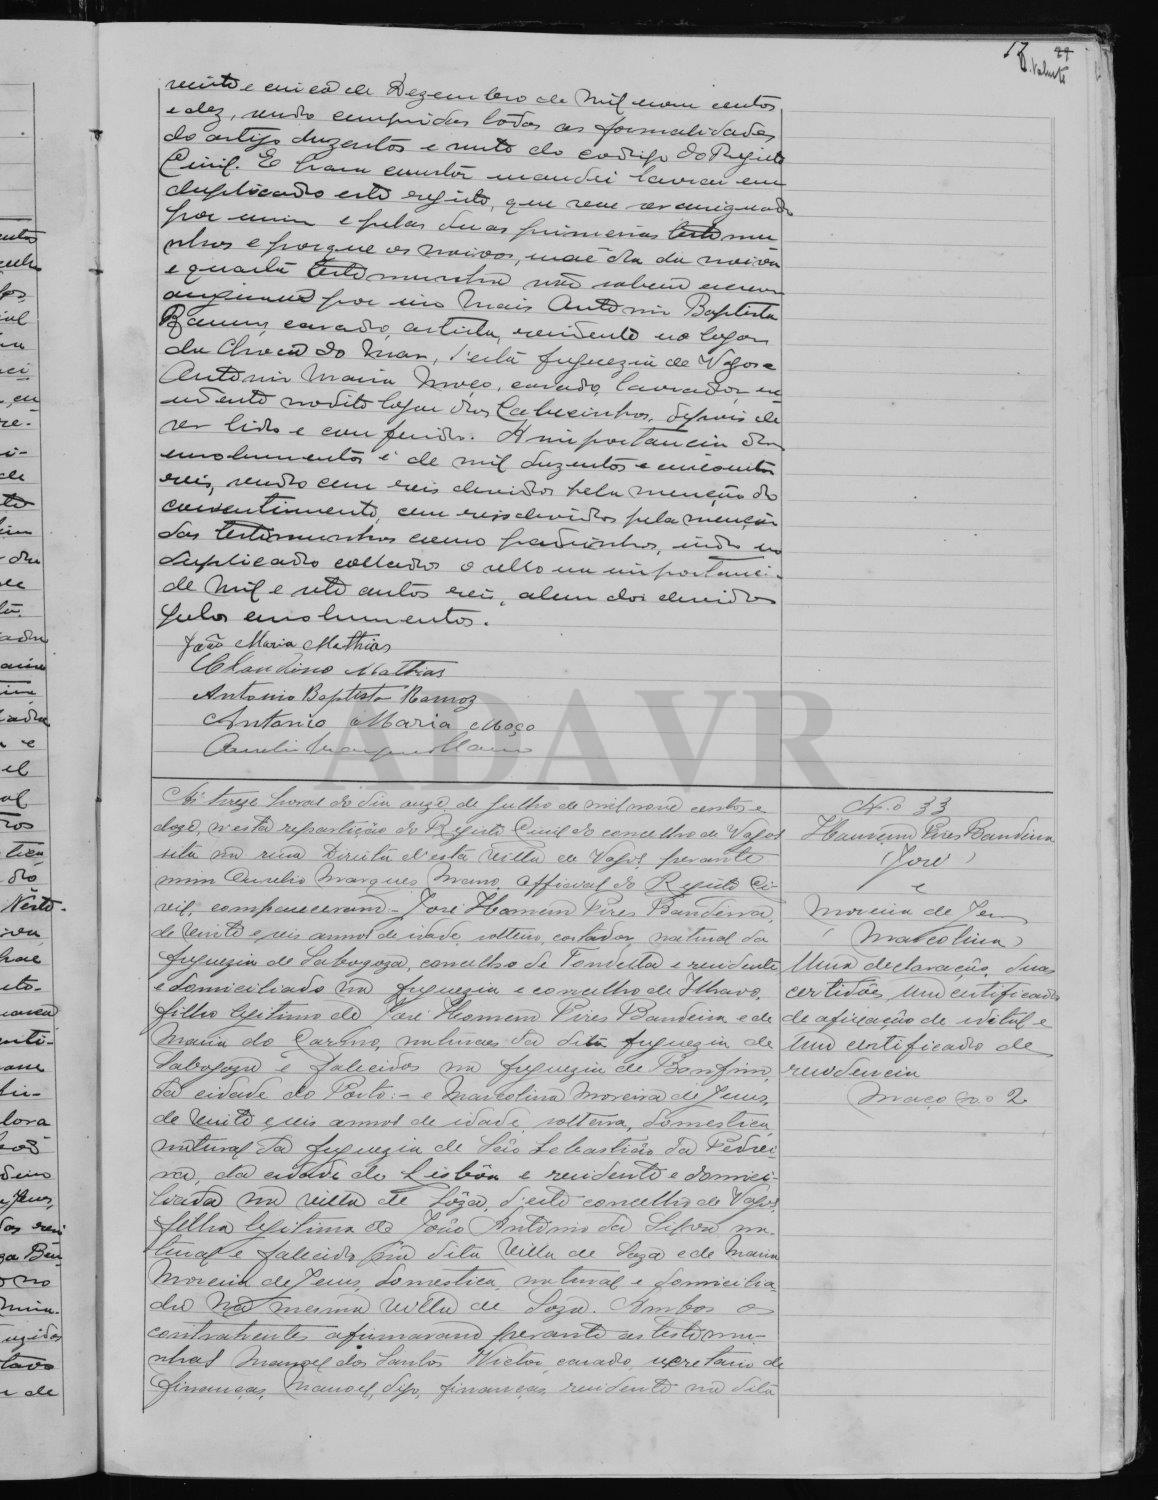 vinte e cinco de Dezembro de mil nove centos
e dez, sendo cumpridas todas as formalidades
do artigo duzentos e vinte do codigo do Registo
Civil. E para constar mandei lavrar em
duplicado este registo, que vae ser assignado
por mim e pelas duas primeiras testemu
nhas e porque os noivos, mãe da noiva
e quarta testemunha não sabem escrever
assignam por isso mais Antonio Baptista
Ramos, casado, artista, residente no logar
da Choca do Mar, d'esta freguezia de Vagos e
Antonio Maria Moço, casado, lavrador, re
sidente no dito logar dos Cabecinhos, depois de
ser lido e conferido. A importancia dos
emolumentos é de mil duzentos e cincoenta
reis, sendo cem reis devidos pela menção do
consentimento, cem reis devidos pela menção
das testemunhas como padrinhos, indo no
duplicado collados o sello na importanci-
de mil e sete centos reis, alem dos devidos
pelos emolumentos.
João Maria Mathias
Claudino Mathias
Antonio Baptista Ramoz
Antonio Maria Moço
Aurelio Marques Mano
Ás treze horas do dia onze de Julho de mil nove centos e
doze, n'esta repartição do Registo Civil do concelho de Vagos
sita na rua Direita d'esta Villa de Vagos, perante
mim Aurelio Marques Mano, official do Registo Ci-
vil, compareceram:- José Homem Pires Bandeira,
de vinte e seis annos de idade, solteiro, cortador, natural da
freguezia de Sabugoza, concelho de Tondella e residente
e domiciliado na freguezia e concelho de Ilhavo,
filho legitimo de José Homem Pires Bandeira e de
Maria do Carmo, naturaes da dita freguezia de
Sabugoza e falecidos na freguezia de Bomfim,
da cidade do Porto:- e Marcolina Moreira de Jesus,
de vinte e seis annos de idade, solteira, domestica,
natural da freguezia de São Sebastião da Pedrei-
ra, da cidade de Lisbôa e residente e domici-
liada na villa de Sôza, d'este concelho de Vagos,
filha legitima de João Antonio da Silva, na-
tural e falecido na dita Villa de Soza e de Maria
Moreira de Jesus, domestica, natural e domicilia-
da na mesma villa de Soza. Ambos os
contrahentes afirmaram perante as testemu-
nhas Manoel dos Santos Victor, casado, secretario de
finanças, Manoel, digo, finanças, residente na dita
N.º 33
Homem Pires Bandeira
(José)
e
Moreira de Jesus
(Marcolina)
Uma declaração, duas
certidões, um certificado
de afixação de edital e
um certificado de
residencia
Maço n.º 2
ADAVR